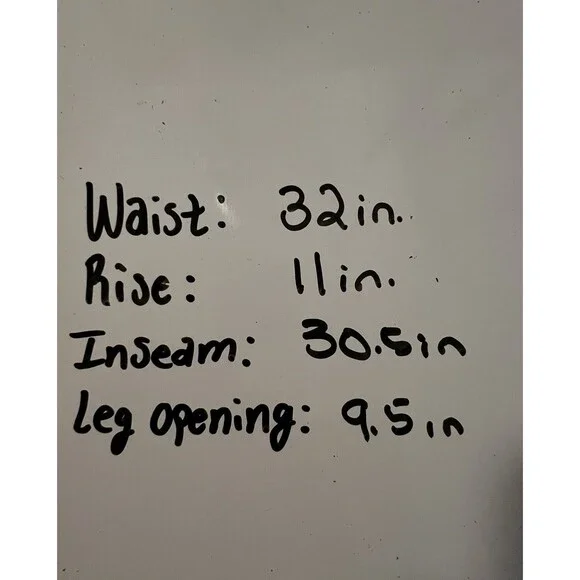 Waist: 32in.
Rise: 11in.
Inseam: 30.5in
Leg opening: 9.5in